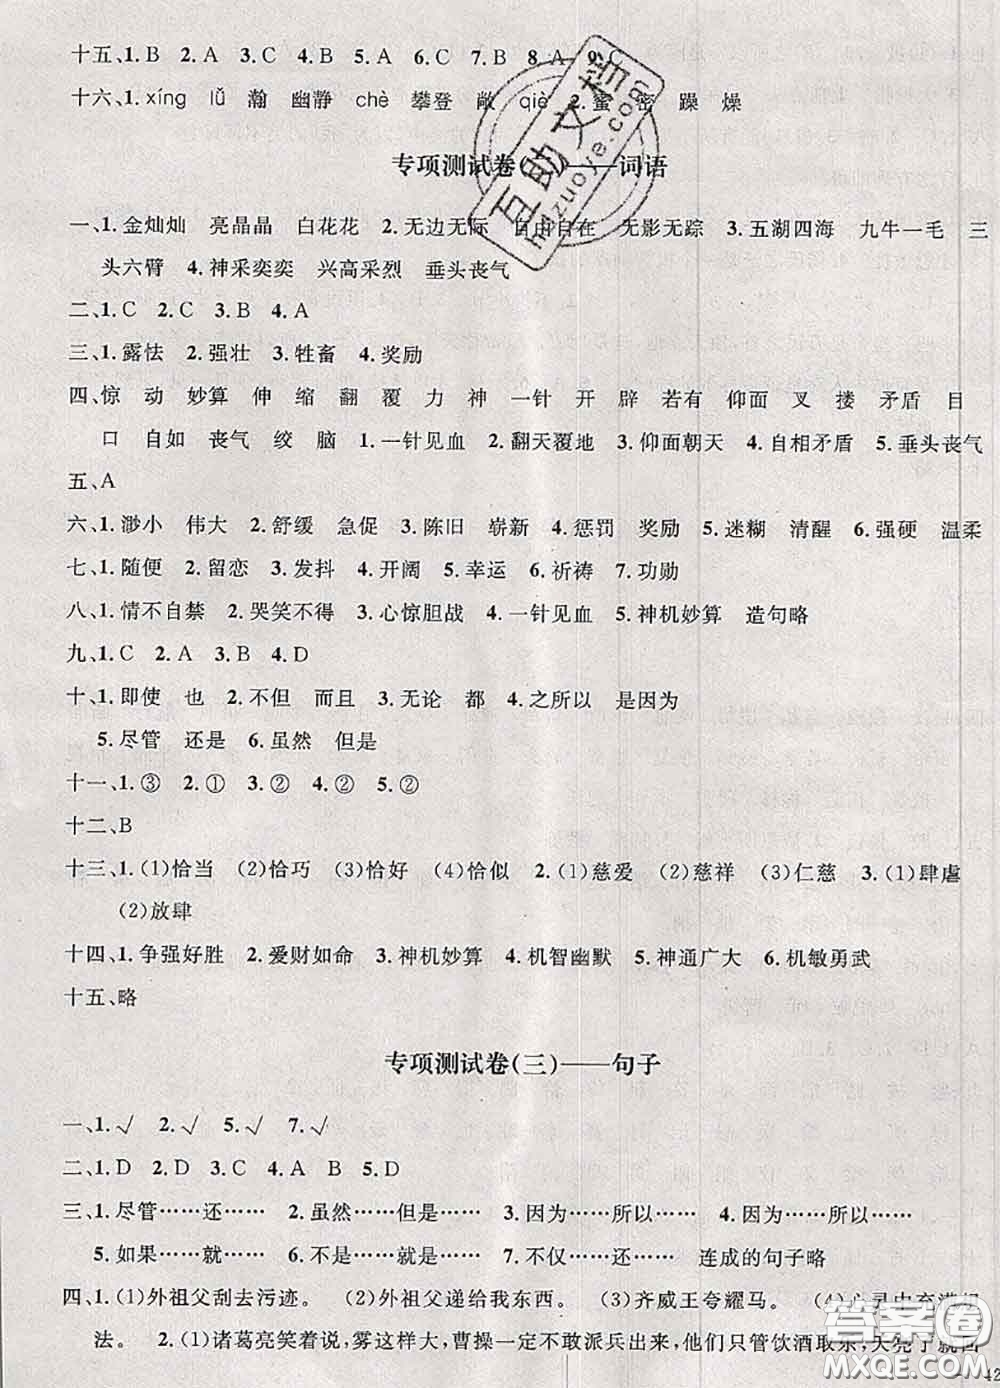 十五、1.B 2.A 3.C 4.B 5.A 6.C 7.B 8.A 9.C
十六、1.xíng lǚ 瀚 幽静 chè 攀登 敞 qiè 2.蜜 密 躁 燥
专项测试卷( )——词语
一、1.金灿灿 亮晶晶 白花花 2.无边无际 自由自在 无影无踪 3.五湖四海 九牛一毛 三
头六臂 4.神采奕奕 兴高采烈 垂头丧气
二、1.C 2.C 3.B 4.A
三、1.露怯 2.强壮 3.牲畜 4.奖励
四、惊 动 妙算 伸 缩 翻 覆 力 神 一针 开 辟 若有 仰面 叉 搂 矛盾 目
口 自如 丧气 绞 脑 1.一针见血 2.翻天覆地 3.仰面朝天 4.自相矛盾 5.垂头丧气
五、A
六、1.渺小 伟大 2.舒缓 急促 3.陈旧 崭新 4.惩罚 奖励 5.迷糊 清醒 6.强硬 温柔
七、1.随便 2.留恋 3.发抖 4.开阔 5.幸运 6.祈祷 7.功勋
八、1.情不自禁 2.哭笑不得 3.心惊胆战 4.一针见血 5.神机妙算 造句略
九、1.C 2.A 3.B 4.D
十、1.即使 也 2.不但 而且 3.无论 都 4.之所以 是因为
5.尽管 还是 6.虽然 但是
十一、1.③ 2.① 3.② 4.② 5.②
十二、B
十三、1.(1)恰当 (2)恰巧 (3)恰好 (4)恰似 2.(1)慈爱 (2)慈祥 (3)仁慈 3.(1)肆虐
(2)放肆
十四、1.争强好胜 2.爱财如命 3.神机妙算 4.机智幽默 5.神通广大 6.机敏勇武
十五、略
专项测试卷(三)——句子
一、1.√ 2.√ 5.√ 7.√
二、1.D 2.D 3.C 4.A B 5.D
三、1.尽管……还…… 2.虽然……但是…… 3.因为……所以…… 4.因为……所以……
5.如果……就…… 6.不是……就是…… 7.不仅……还…… 连成的句子略
四、1.(1)外祖父刮去污迹。 (2)外祖父递给我东西。 (3)齐威王夸耀马。 (4)心灵中充满想
法。 2.(1)诸葛亮笑着说,雾这样大,曹操一定不敢派兵出来,他们只管饮酒取乐,天亮了就回
42
互助文档
huzuoye.com
答案圈
MXQE.COM